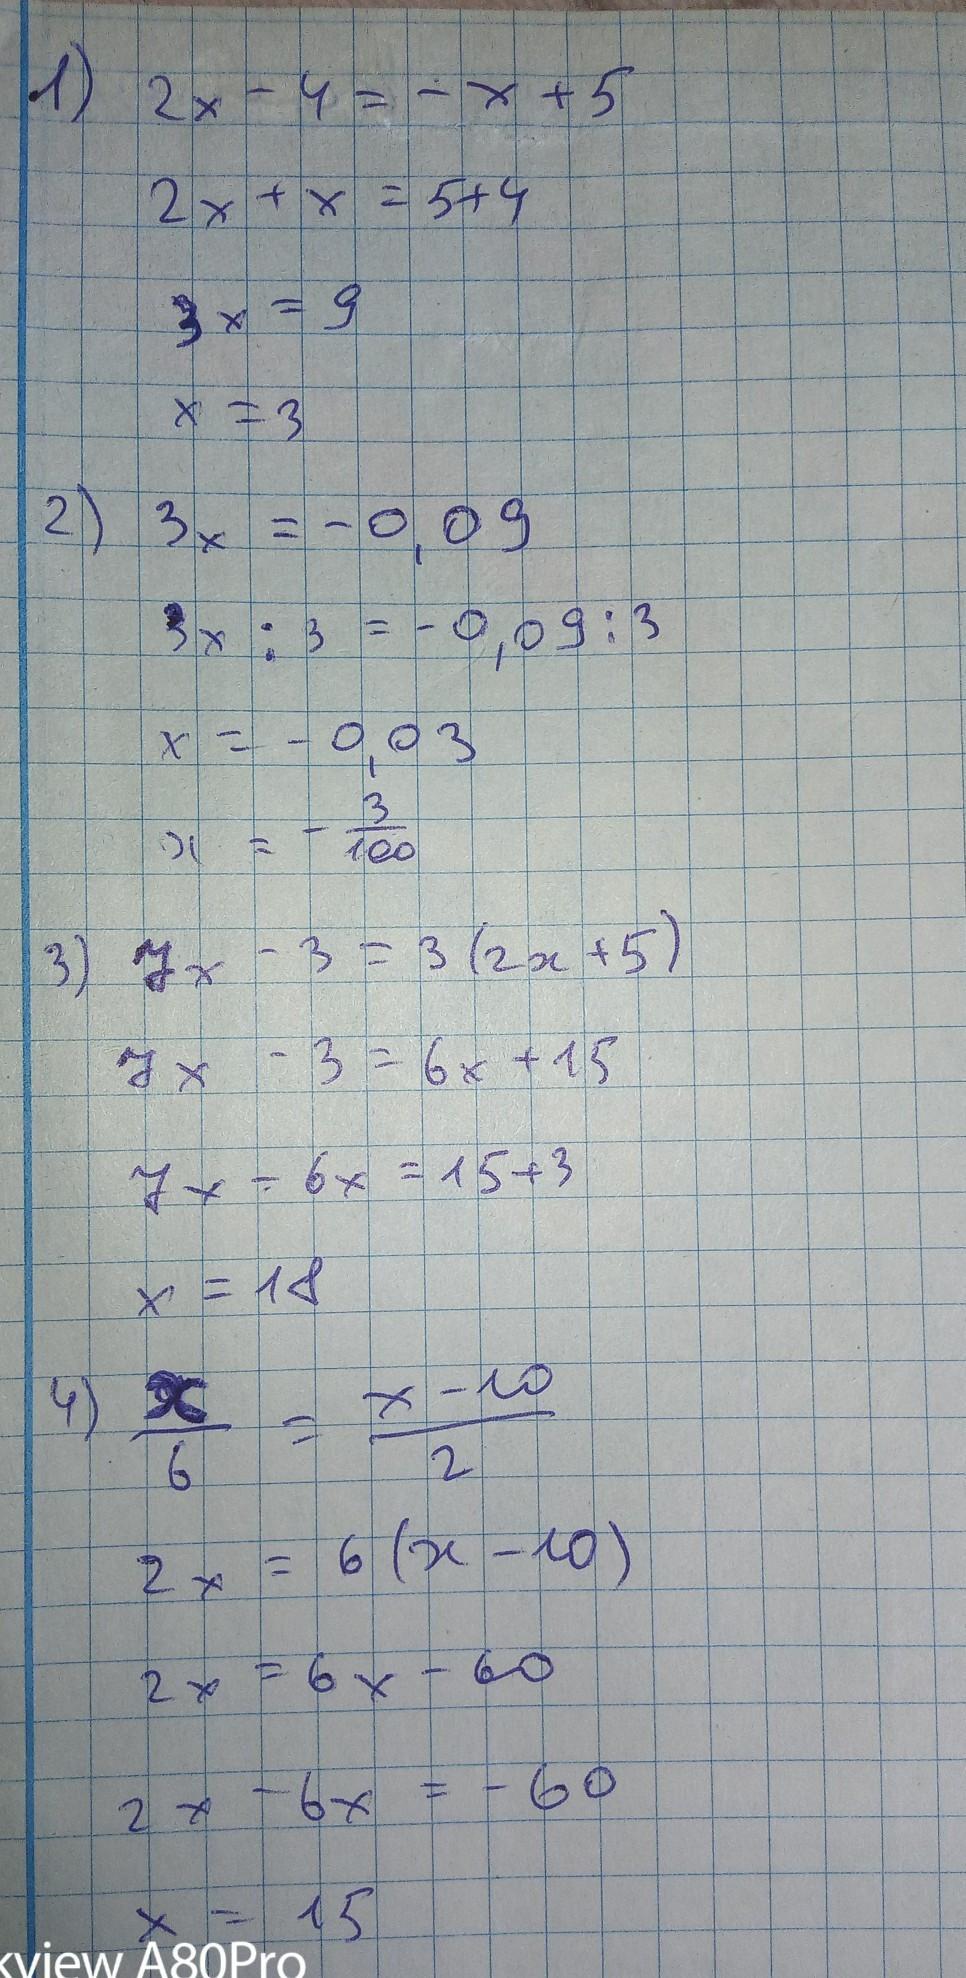 1) 2x - 4 = - x + 5
2x + x = 5+4
3x = 9
x = 3
2) 3x = - 0,09
3x : 3 = - 0,09 : 3
x = - 0,03
x = - 3/100
3) 7x - 3 = 3(2x + 5)
7x - 3 = 6x + 15
7x - 6x = 15+3
x = 18
4) x/6 = x - 10/2
2x = 6(x - 10)
2x = 6x - 60
2x - 6x = - 60
x = 15
kview A80Pro